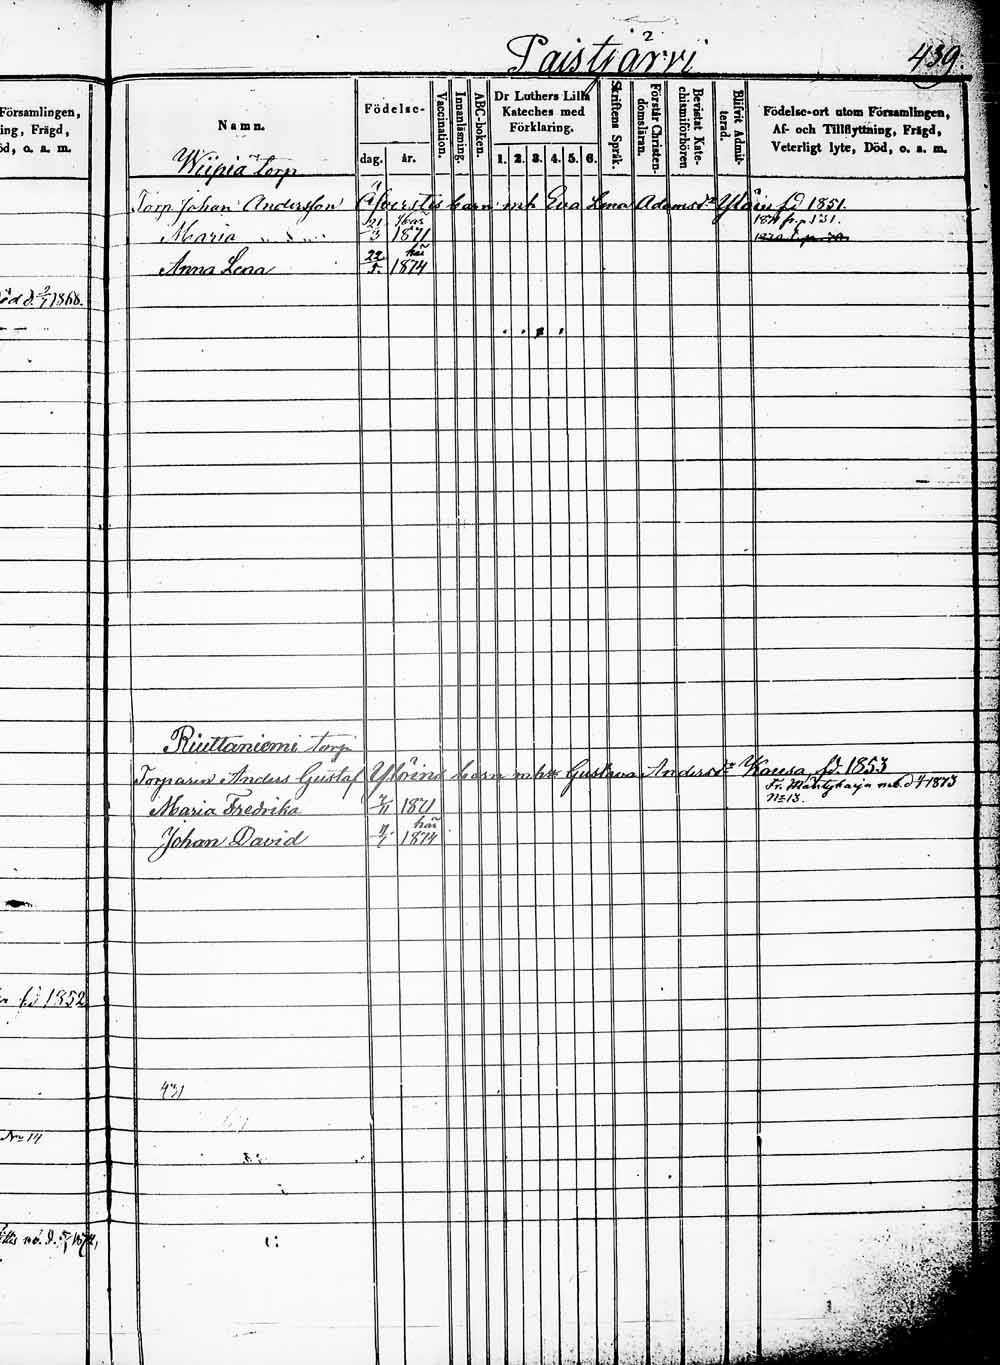 Paistjärvi
439.
Församlingen,
ing, Frägd,
öd, o. a. m.
Namn.
Födelse-
dag. år.
Vaccination.
Innanläsning.
ABC-boken.
Dr Luthers Lilla
Kateches med
Förklaring.
1. 2. 3. 4. 5. 6.
Skriftens Språk.
Förstår Christen-
domsläran.
Bevistat Kate-
chismiförhören
Blifvit Admit-
terad.
Födelse-ort utom Församlingen,
Af- och Tillflyttning, Frägd,
Veterligt lyte, Död, o. a. m.
Wiipia torp
Torp Johan Andersson barn mh Eva Lena Adamsdr fd 1851.
Maria 21/3 1871
Anna Lena 22/5 här 1874
1868.
Riuttaniemi torp
Torparen Anders Gustaf barn mhu Gustava Andersdr fd. 1853
1873
No 13.
Maria Fredrika 1871
Johan David här 1874
fd 1852
431
No 14